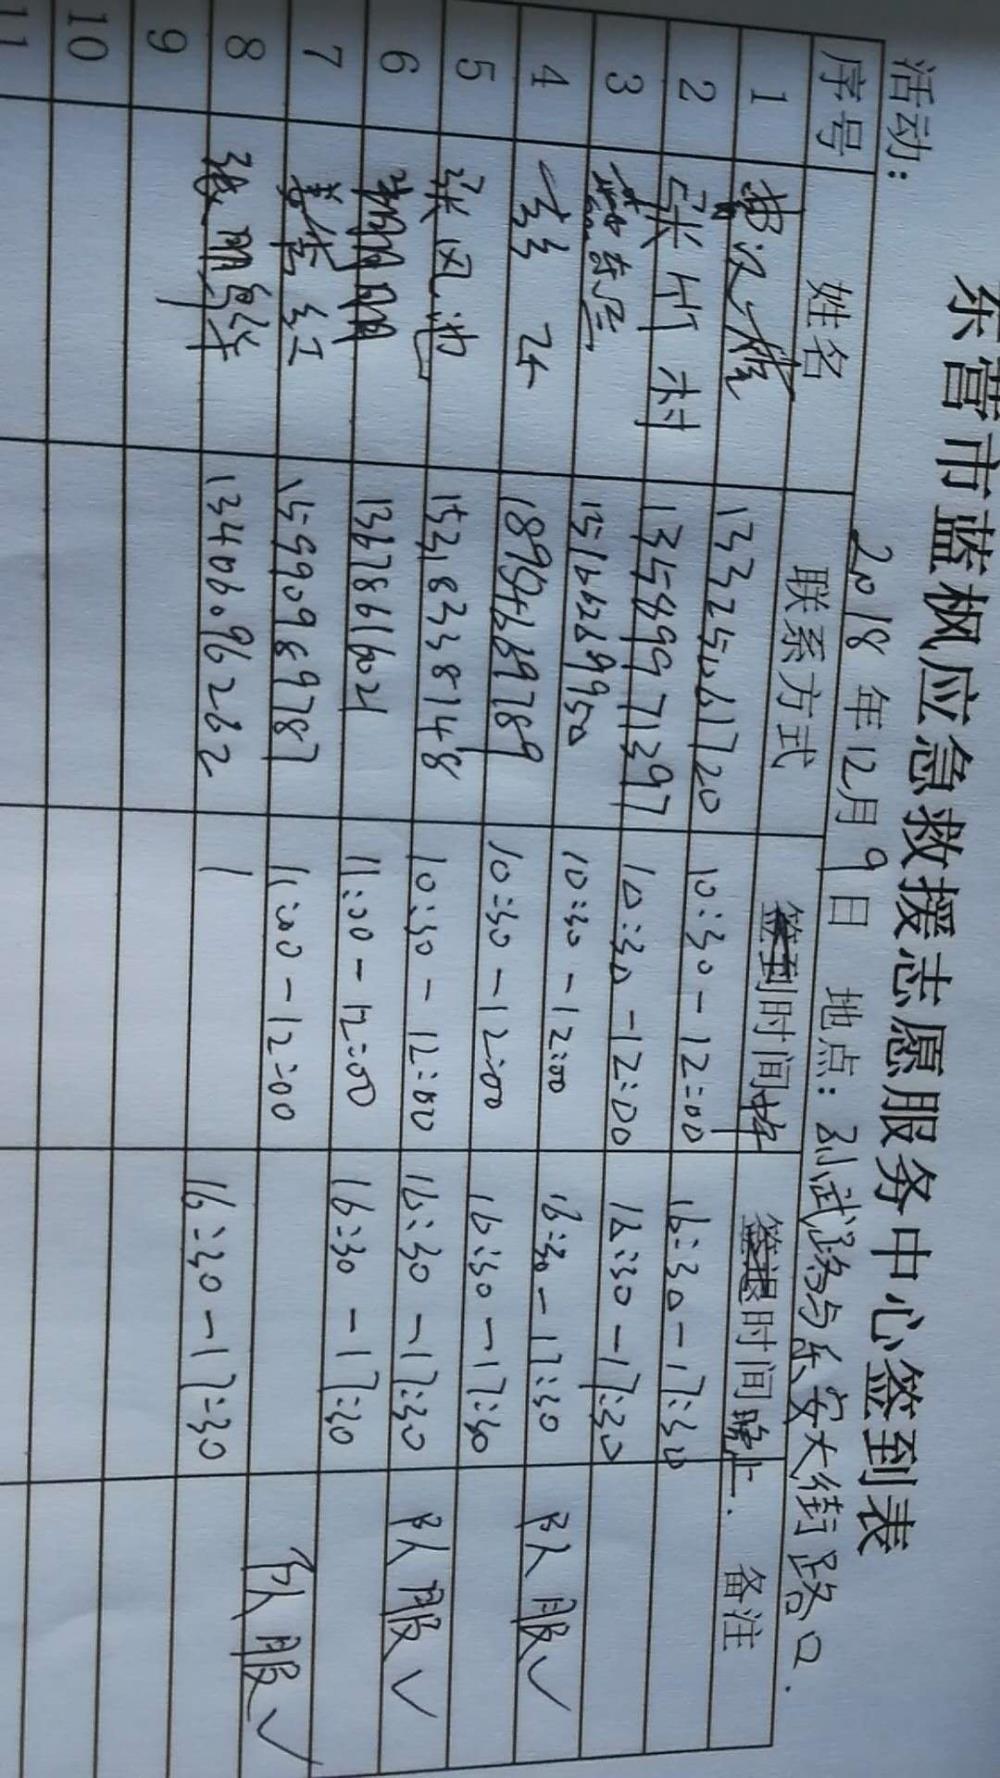 东营市蓝枫应急救援志愿服务中心签到表
活动： 2018年12月9日 地点：孙武路与乐安大街路口.
序号 姓名 联系方式 签到时间 签退时间 备注
1 133250061720 10:30-12:00 16:30-17:30
2 张竹村 13589971397 10:30-12:00 16:30-17:30
3 15166289950 10:30-12:00 16:30-17:30
4 18954689789 10:30-12:00 16:30-17:30 队服✓
5 张风池 15318338748 10:30-12:00 16:30-17:30
6 13678616021 11:00-12:00 16:30-17:30 队服✓
7 15990989787 11:00-12:00
8 13406096262 16:30-17:30 队服✓
9
10
11